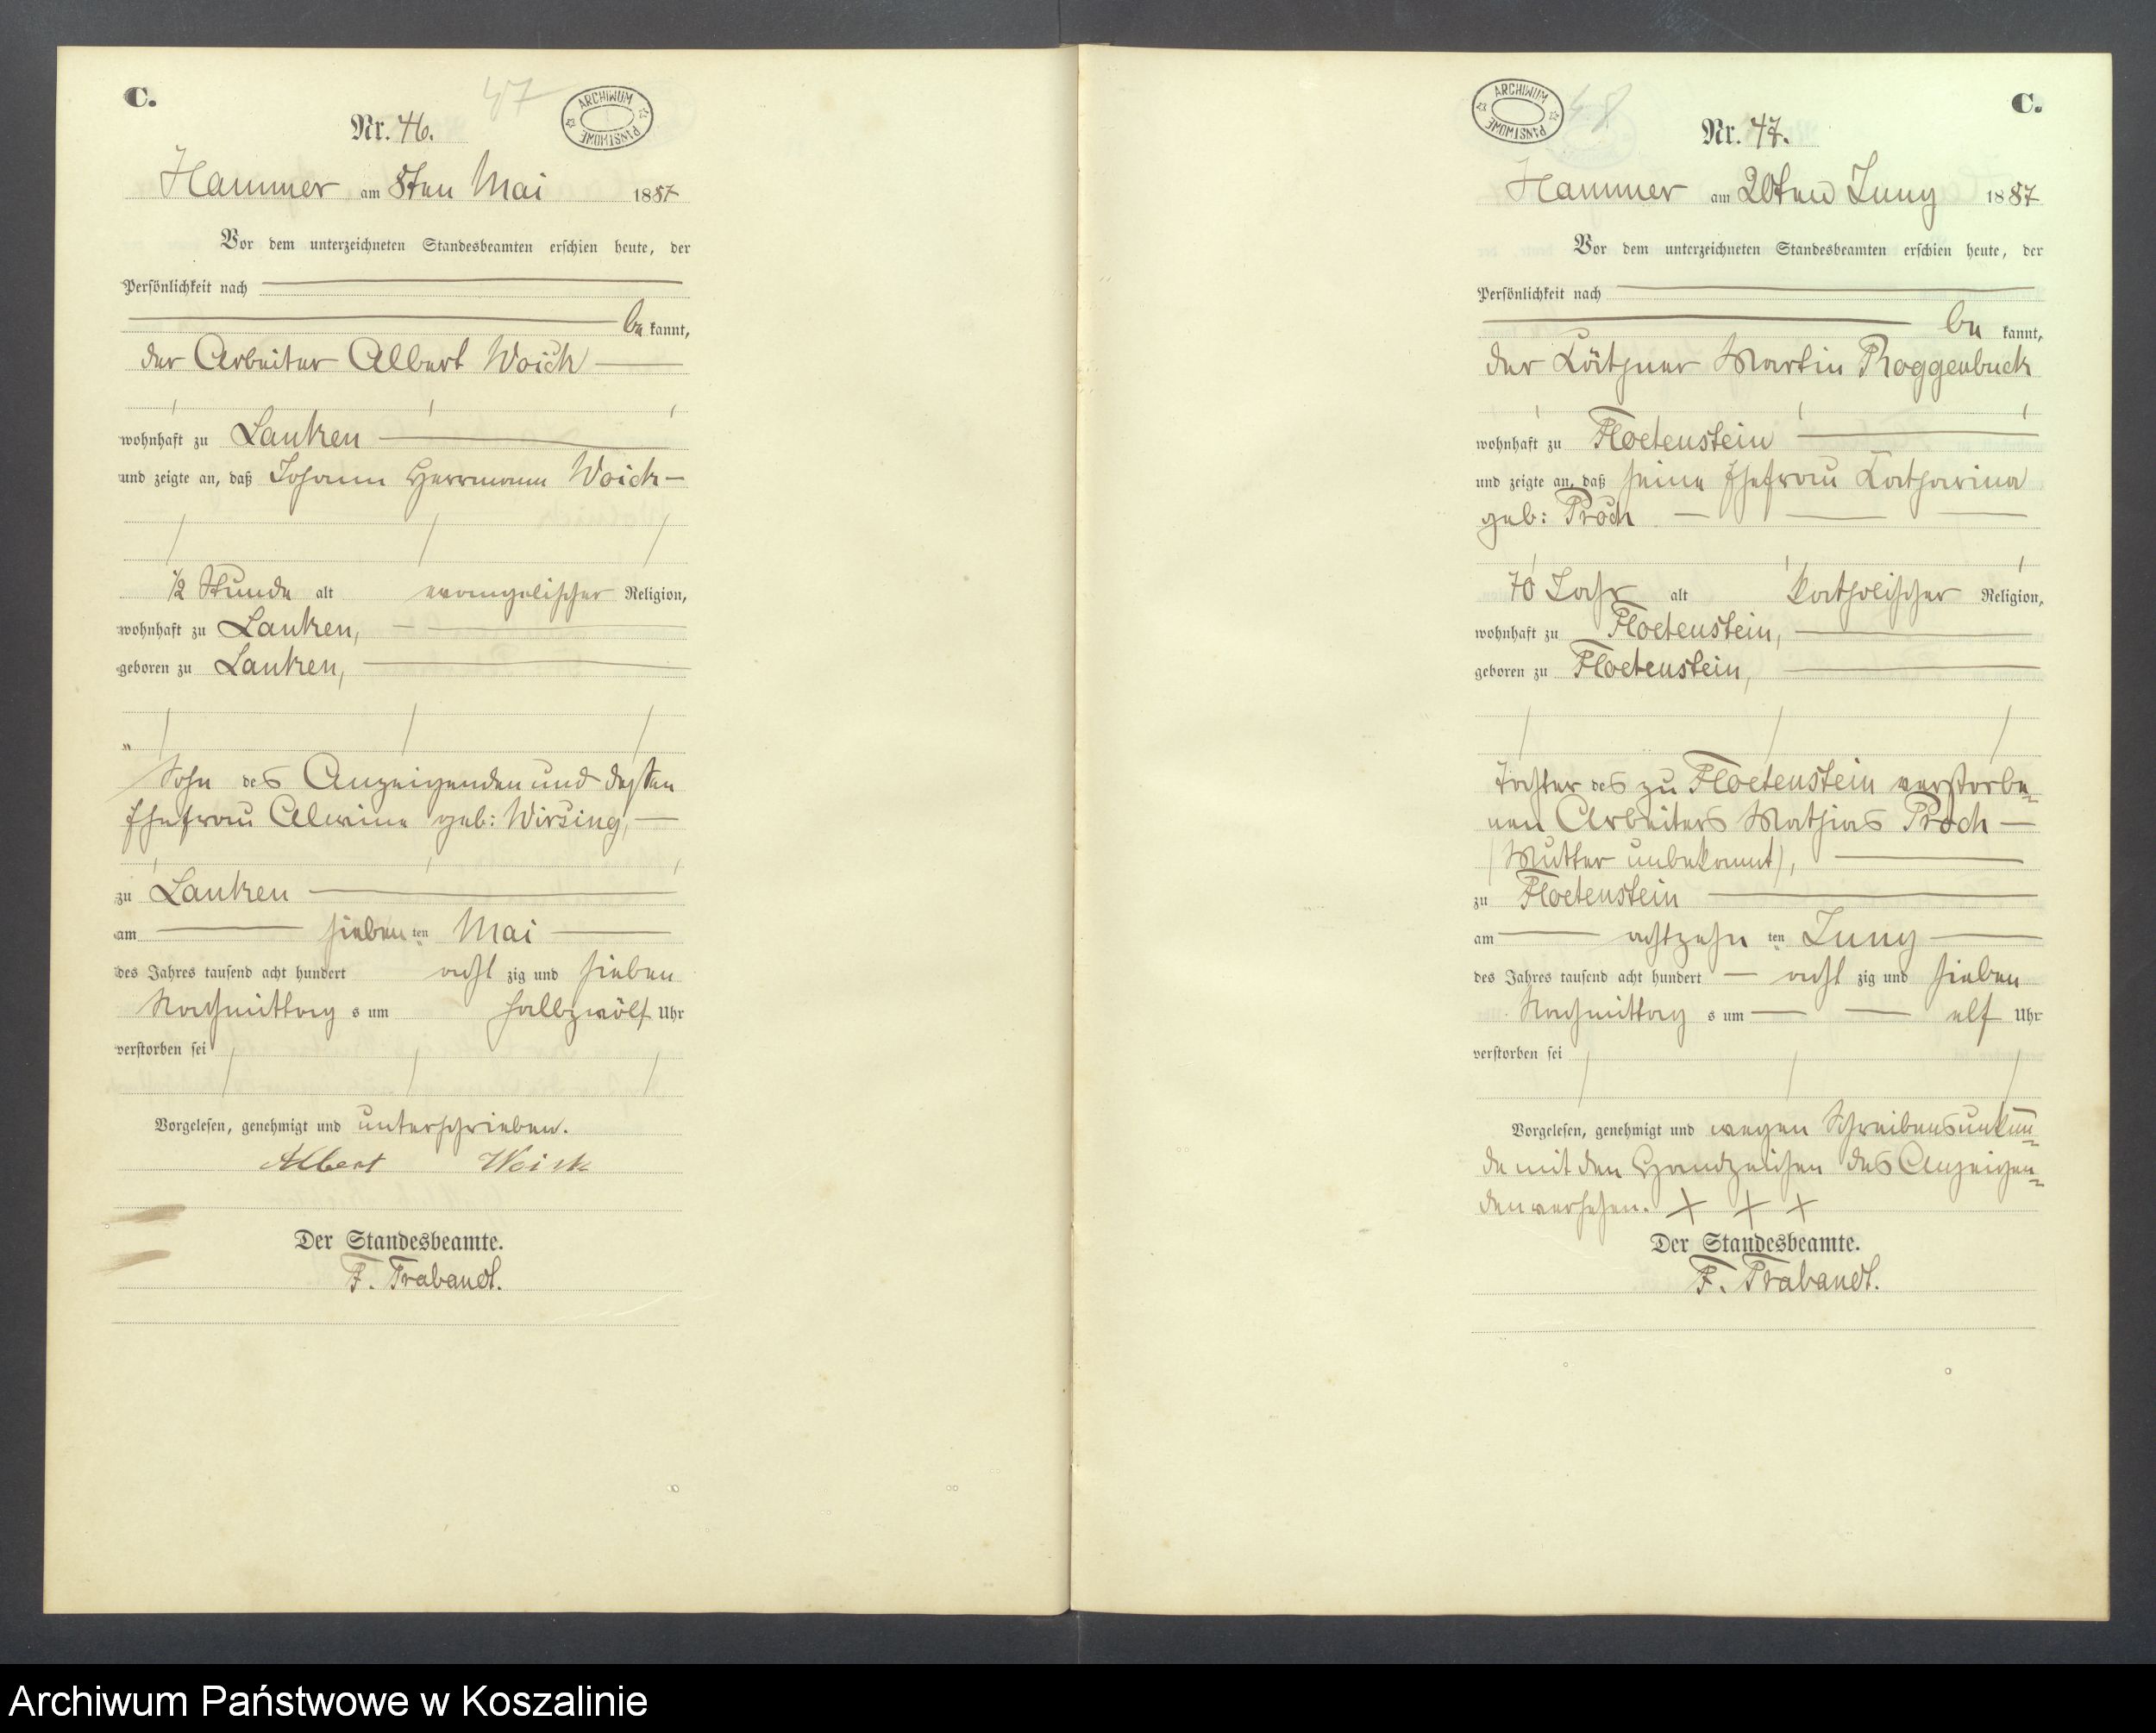 C.
47
ARCHIWUM PAŃSTWOWE
Nr. 46.
Hammer am 8ten Mai 1887
Vor dem unterzeichneten Standesbeamten erschien heute, der
Persönlichkeit nach
be kannt,
der Arbeiter Albert Woick
wohnhaft zu Lanken
und zeigte an, daß Johann Herrmann Woick
1/2 Stunde alt evangelischer Religion,
wohnhaft zu Lanken,
geboren zu Lanken,
Sohn des Anzeigenden und dessen
Ehefrau Alwine geb: Wirsing,
zu Lanken
am sieben ten Mai
des Jahres tausend acht hundert acht zig und sieben
Nachmittag s um halbzwölf Uhr
verstorben sei
Vorgelesen, genehmigt und unterschrieben.
Albert Woick
Der Standesbeamte.
F. Trabandt.
C.
48
ARCHIWUM PAŃSTWOWE
Nr. 47.
Hammer am 20ten Juny 1887
Vor dem unterzeichneten Standesbeamten erschien heute, der
Persönlichkeit nach
be kannt,
der Käthner Martin Roggenbuck
wohnhaft zu Floetenstein
und zeigte an, daß seine Ehefrau Katharina
geb: Proch
70 Jahr alt katholischer Religion,
wohnhaft zu Floetenstein,
geboren zu Floetenstein,
Tochter des zu Floetenstein verstorbe=
nen Arbeiters Mathias Proch
(Mutter unbekannt),
zu Floetenstein
am achtzehn ten Juny
des Jahres tausend acht hundert acht zig und sieben
Nachmittag s um elf Uhr
verstorben sei
Vorgelesen, genehmigt und wegen Schreibensunkun=
de mit den Handzeichen des Anzeigen=
den versehen. X X X
Der Standesbeamte.
F. Trabandt.
Archiwum Państwowe w Koszalinie